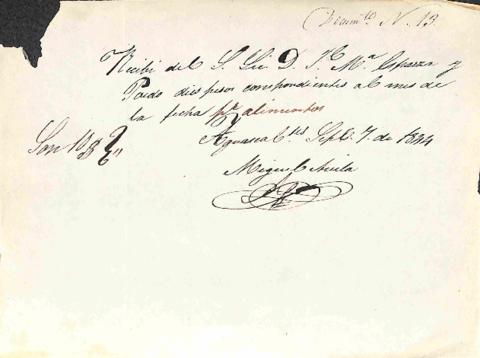 Docum.to N. 13
Recibi del S. Lic. D. J.e M.a Esparza y
Pardo diez pesos correspondientes al mes de
la fecha p.r alimentos
Aguasca.tes Sept.e 7 de 1844
Son 10 $
Miguel Avila